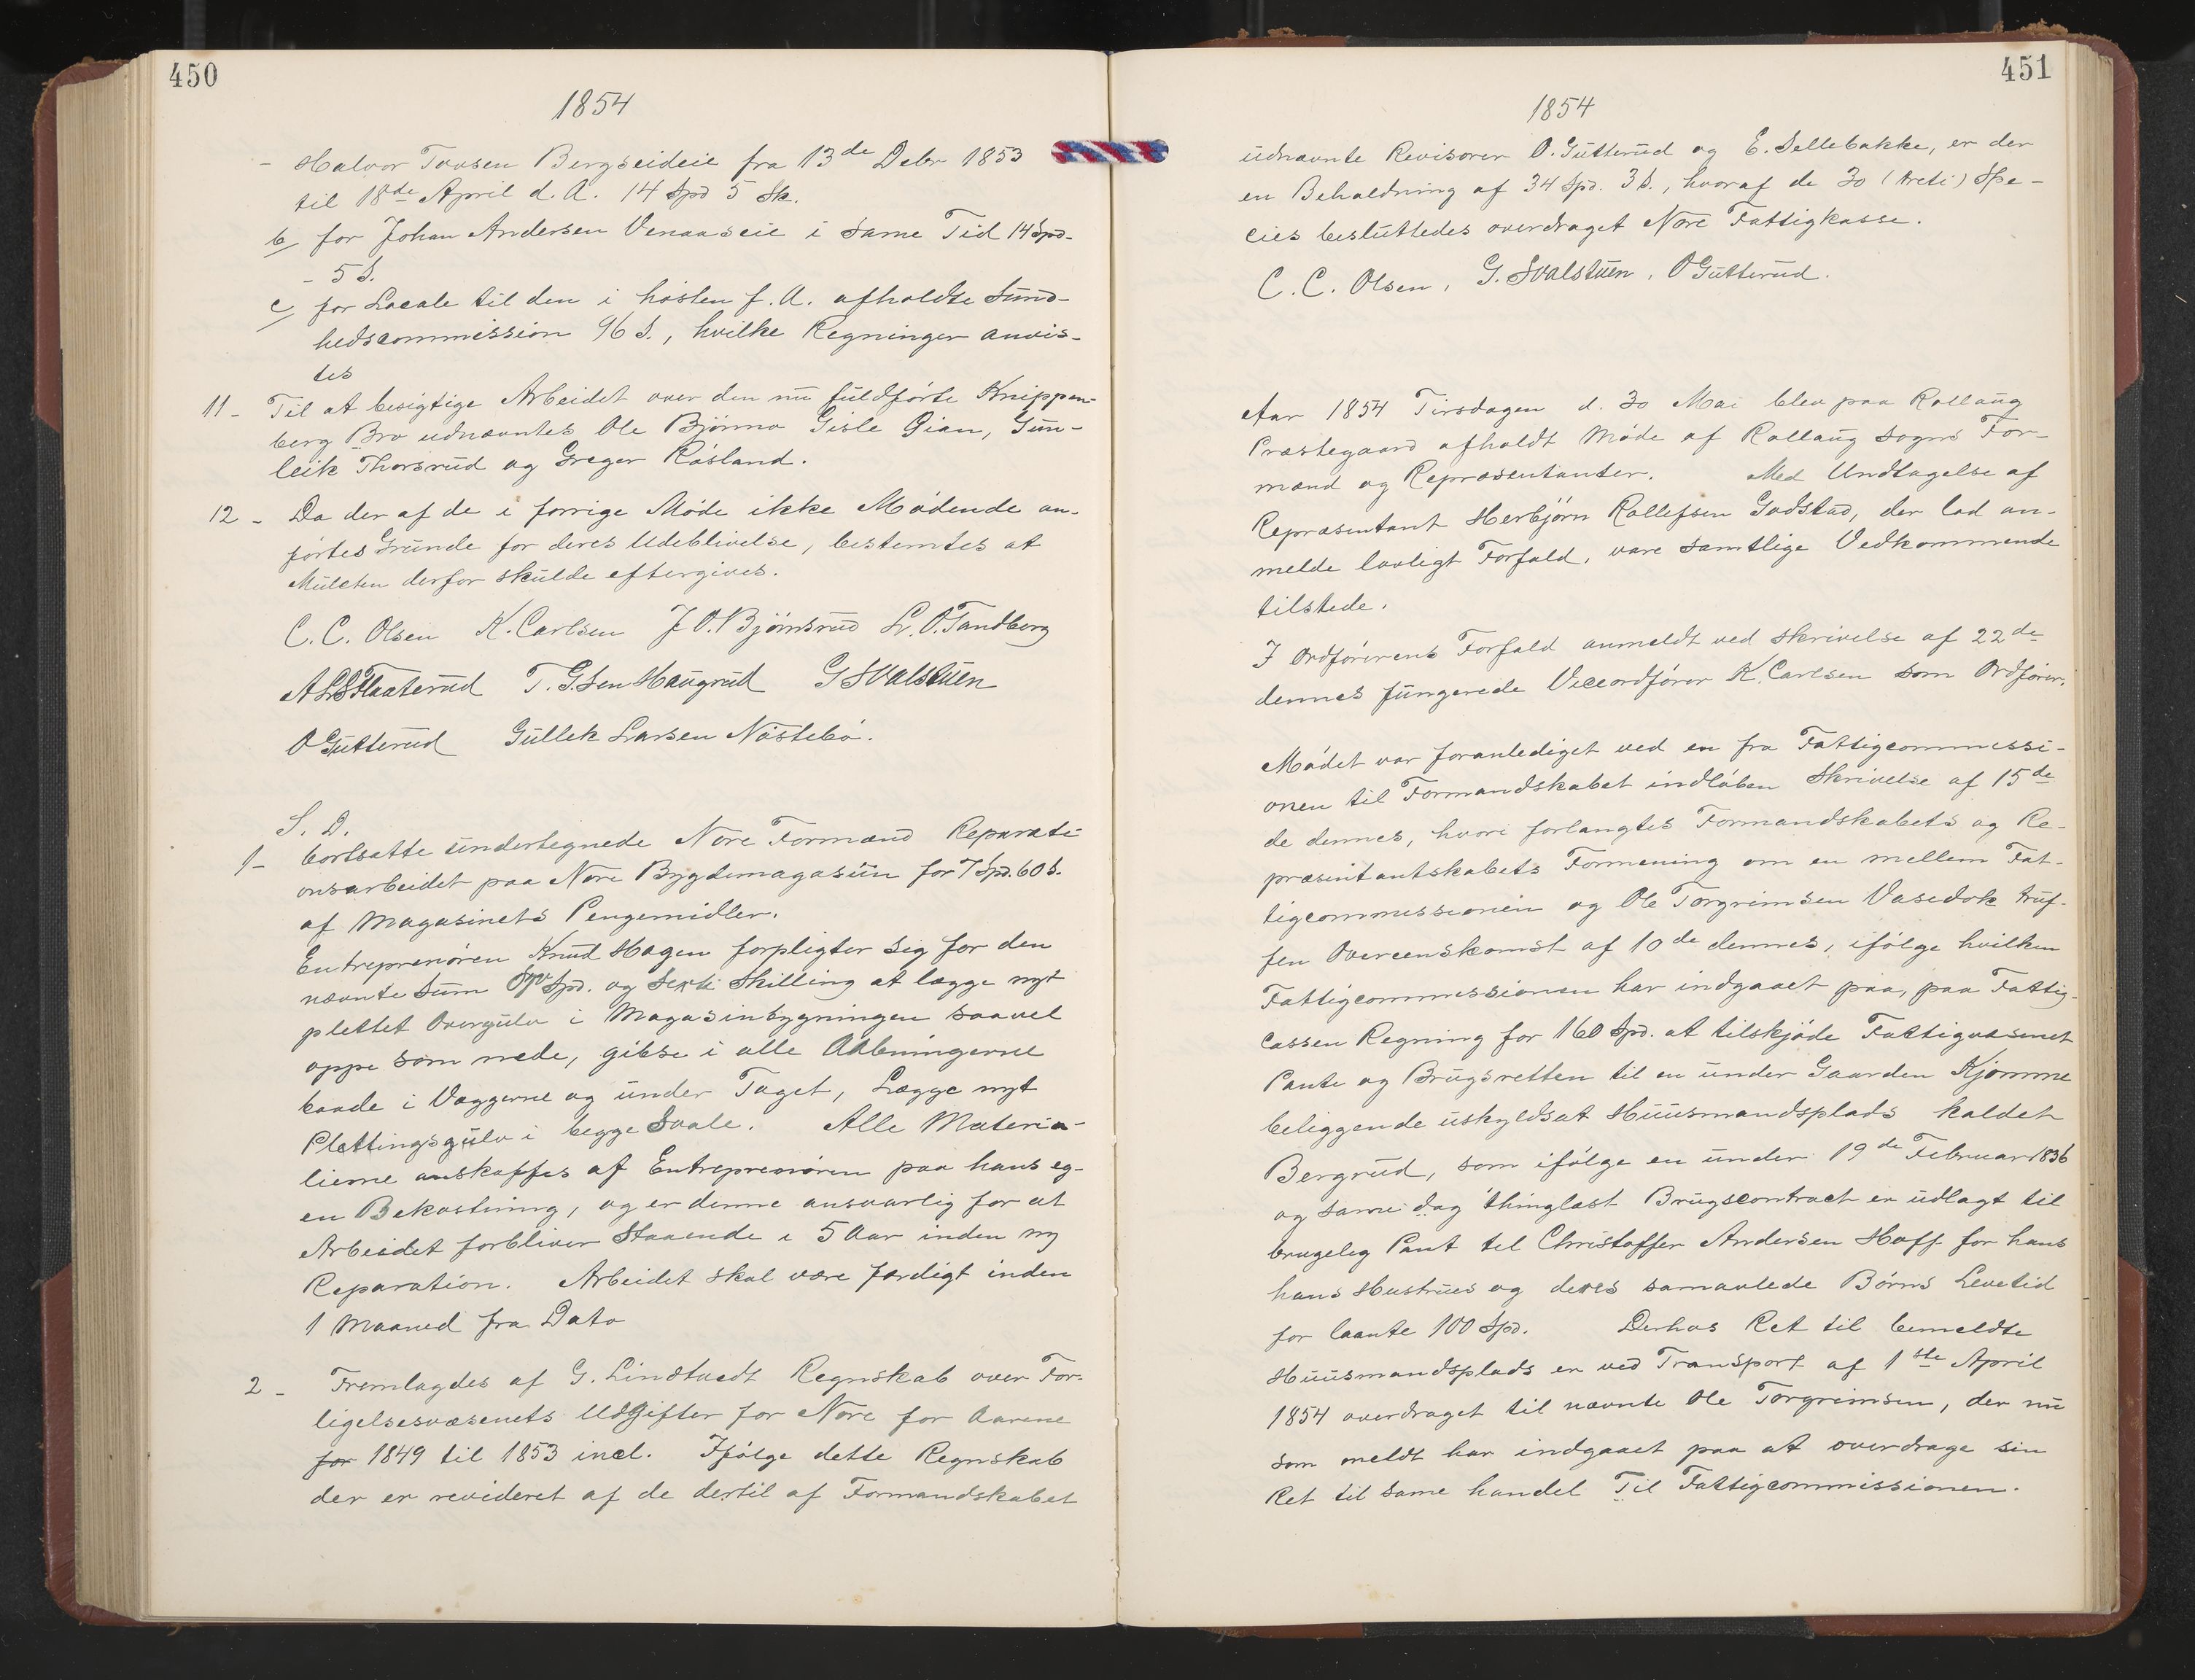 450
1854
- Halvor Tovsen Bergseideie fra 13de Debr 1853
til 18de April d. A. 14 Spd 5 Sk.
b/ for Johan Andersen Venaaseie i same Tid 14 Spd-
- 5 S.
c/ for Locale til den i hösten f. A. afholdte Sund-
hedscommission 96 S., hvilke Regninger anvis-
tes
11- Til at besigtige Arbeidet over den nu fuldförte Knippen-
berg Bro udnævntes Ole Björnno Gisle Qian, Gun-
leik Thorsrud og Greger Råsland.
12- Da der af de i forrige Möde ikke Mödende an-
förtes Grunde for deres Udeblivelse, bestemtes at
Mulcten derfor skulde eftergives.
C. C. Olsen K. Carlsen J O. Björnsrud L. O. Tandberg
A L S Flaaterud T. G.Sen Haugrud G Svalstuen
O Gutterud Gullek Larsen Nöstebö.
S. D.
1- bortsatte undertegnede Nore Formænd Reparati
onsarbeidet paa Nore Bygdemagasiin for 7 Spd. 60 S.
af Magasinets Pengemidler.
Entreprenören Knud Hagen forpligter sig for den
nævnte Sum Syv Spd. og Sexti Skilling at lægge nyt
plettet Overgulv i Magasinbygningen saavel
oppe som nede, gibse i alle Aabningerne
baade i Væggerne og under Taget, Lægge nyt
Plettingsgulv i begge Svale. Alle Materia-
lierne anskaffes af Entreprenören paa hans eg-
en Bekostning, og er denne ansvarlig for at
Arbeidet forbliver Staaende i 5 Aar inden ny
Reparation. Arbeidet skal være færdigt inden
1 Maaned fra Dato
2- Fremlagdes af G. Lindtvedt Regnskab over For-
ligelsesvæsenets Udgifter for Nore for Aarene
for 1849 til 1853 incl. Ifölge dette Regnskab
der er revideret af de dertil af Formandskabet
451
1854
udnævnte Revisorer O. Gutterud og E. Sellebakke, er der
en Behaldning af 34 Spd. 3 S., hvoraf de 30 (treti) Spe-
cies besluttedes overdraget Nore Fattigkasse.
C. C. Olsen, G. Svalstuen, O Gutterud.
Aar 1854 Tirsdagen d. 30 Mai blev paa Rollaug
Præstegaard afholdt Möde af Rollaug Sogns For-
mænd og Repræsentanter. Med Undtagelse af
Repræsentant Herbjörn Rollefsen Godstad, der lod an-
melde lovligt Forfald, vare samtlige Vedkommende
tilstede.
I Ordförerens Forfald anmeldt ved skrivelse af 22de
dennes fungerede Viceordförer K. Carlsen som Ordförer.
Mödet var foranlediget ved en fra Fattigcommissi-
onen til Formandskabet indlöben Skrivelse af 15de
de dennes, hvori forlangtes Formandskabets og Re-
præsentantskabets Formening om en mellem Fat-
tigcommissionen og Ole Torgrimsen Vasedok truf-
fen Overeenskomst af 10de dennes, ifölge hvilken
Fattigcommissionen har indgaaet paa, paa Fattig-
cassen Regning for 160 Spd. at tilskjöde Fattigvæsenet
Pante og Brugsretten til en under Gaarden Kjömme
beliggende uskyldsat Huusmandsplads kaldet
Bergrud, som ifölge en under 19de Februar 1836
og same dag thinglæst Brugscontract er udlagt til
brugelig Pant til Christoffer Andersen Hoff for hans
hans Hustrues og deres samavlede Börns Levetid
for laante 100 Spd. Derhos Ret til bemeldte
Huusmandsplads er ved Transport af 1ste April
1854 overdraget til nævnte Ole Torgrimsen, der nu
som meldt har indgaaet paa at overdrage sin
Ret til same handel Til Fattigcommissionen.